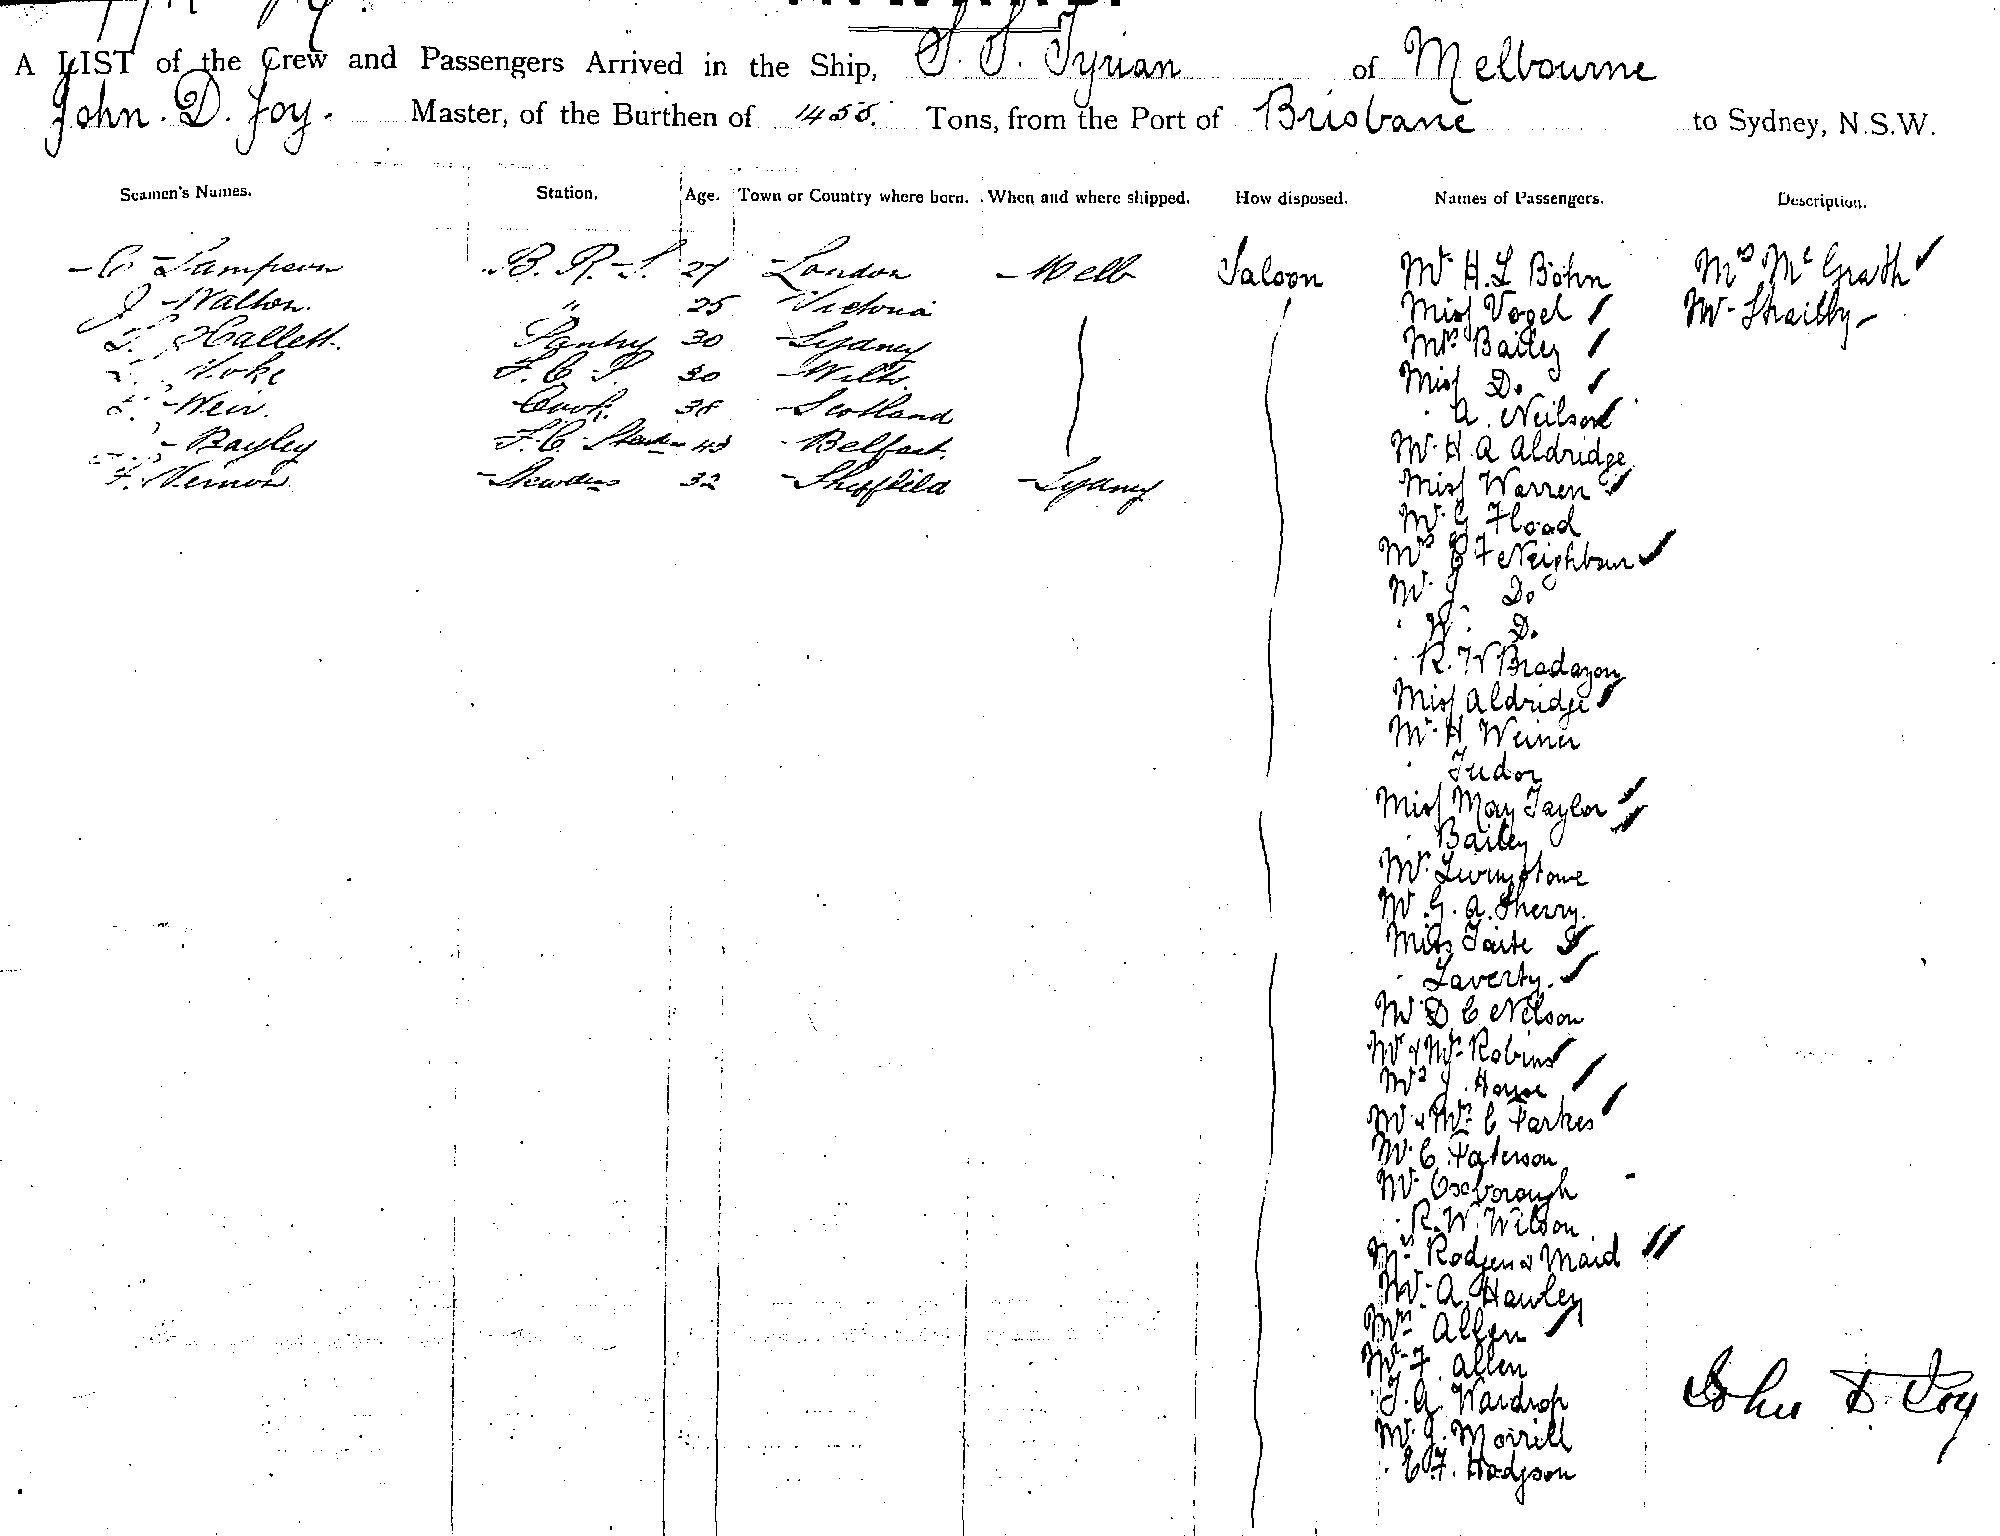 A LIST of the Crew and Passengers Arrived in the Ship, S. S. Tyrian of Melbourne
John. D. Joy. Master, of the Burthen of 1455. Tons, from the Port of Brisbane to Sydney, N.S.W.
Seamen's Names. Station. Age. Town or Country where born. When and where shipped. How disposed. Names of Passengers. Description.
C Sampson B. R. S. 27 London Melb Saloon Mr H. L Bohn Mrs McGrath
J Walton. " 25 Victoria Miss Vogel Mr
Hallett. Pantry 30 Sydney Mrs Bailey
Voke F. C. S. 30 Wilts. Miss Do
Weir. Cook 38 Scotland A. Neilson
Bayley F. C. 43 Belfast. Mr H. A Aldridge
F. Vernon Stewdess 32 Sheffield Sydney Miss Warren
Mr G Flood
Mrs E F Neighbour
Mr J. Do
W. Do
R. W Bradazon
Miss Aldridge
Mr H Weiner
Tudor
Miss May Taylor
Bailey
Mr Livingstone
Mr G. A. Sherry.
Miss Taite
Laverty.
Mr D C Nelson
Mr & Mrs Robins
Mrs J. House
Mr & Mrs C Parkes
Mr C Paterson
Mr Oxborough
R. W. Wilson
Mrs Rodgers & Maid
Mr A. Hawley
Mrs Allen
Mr F. Allen
T. G. Wardrop
John D. Joy
Mr J. Morrill
E F. Hodgson